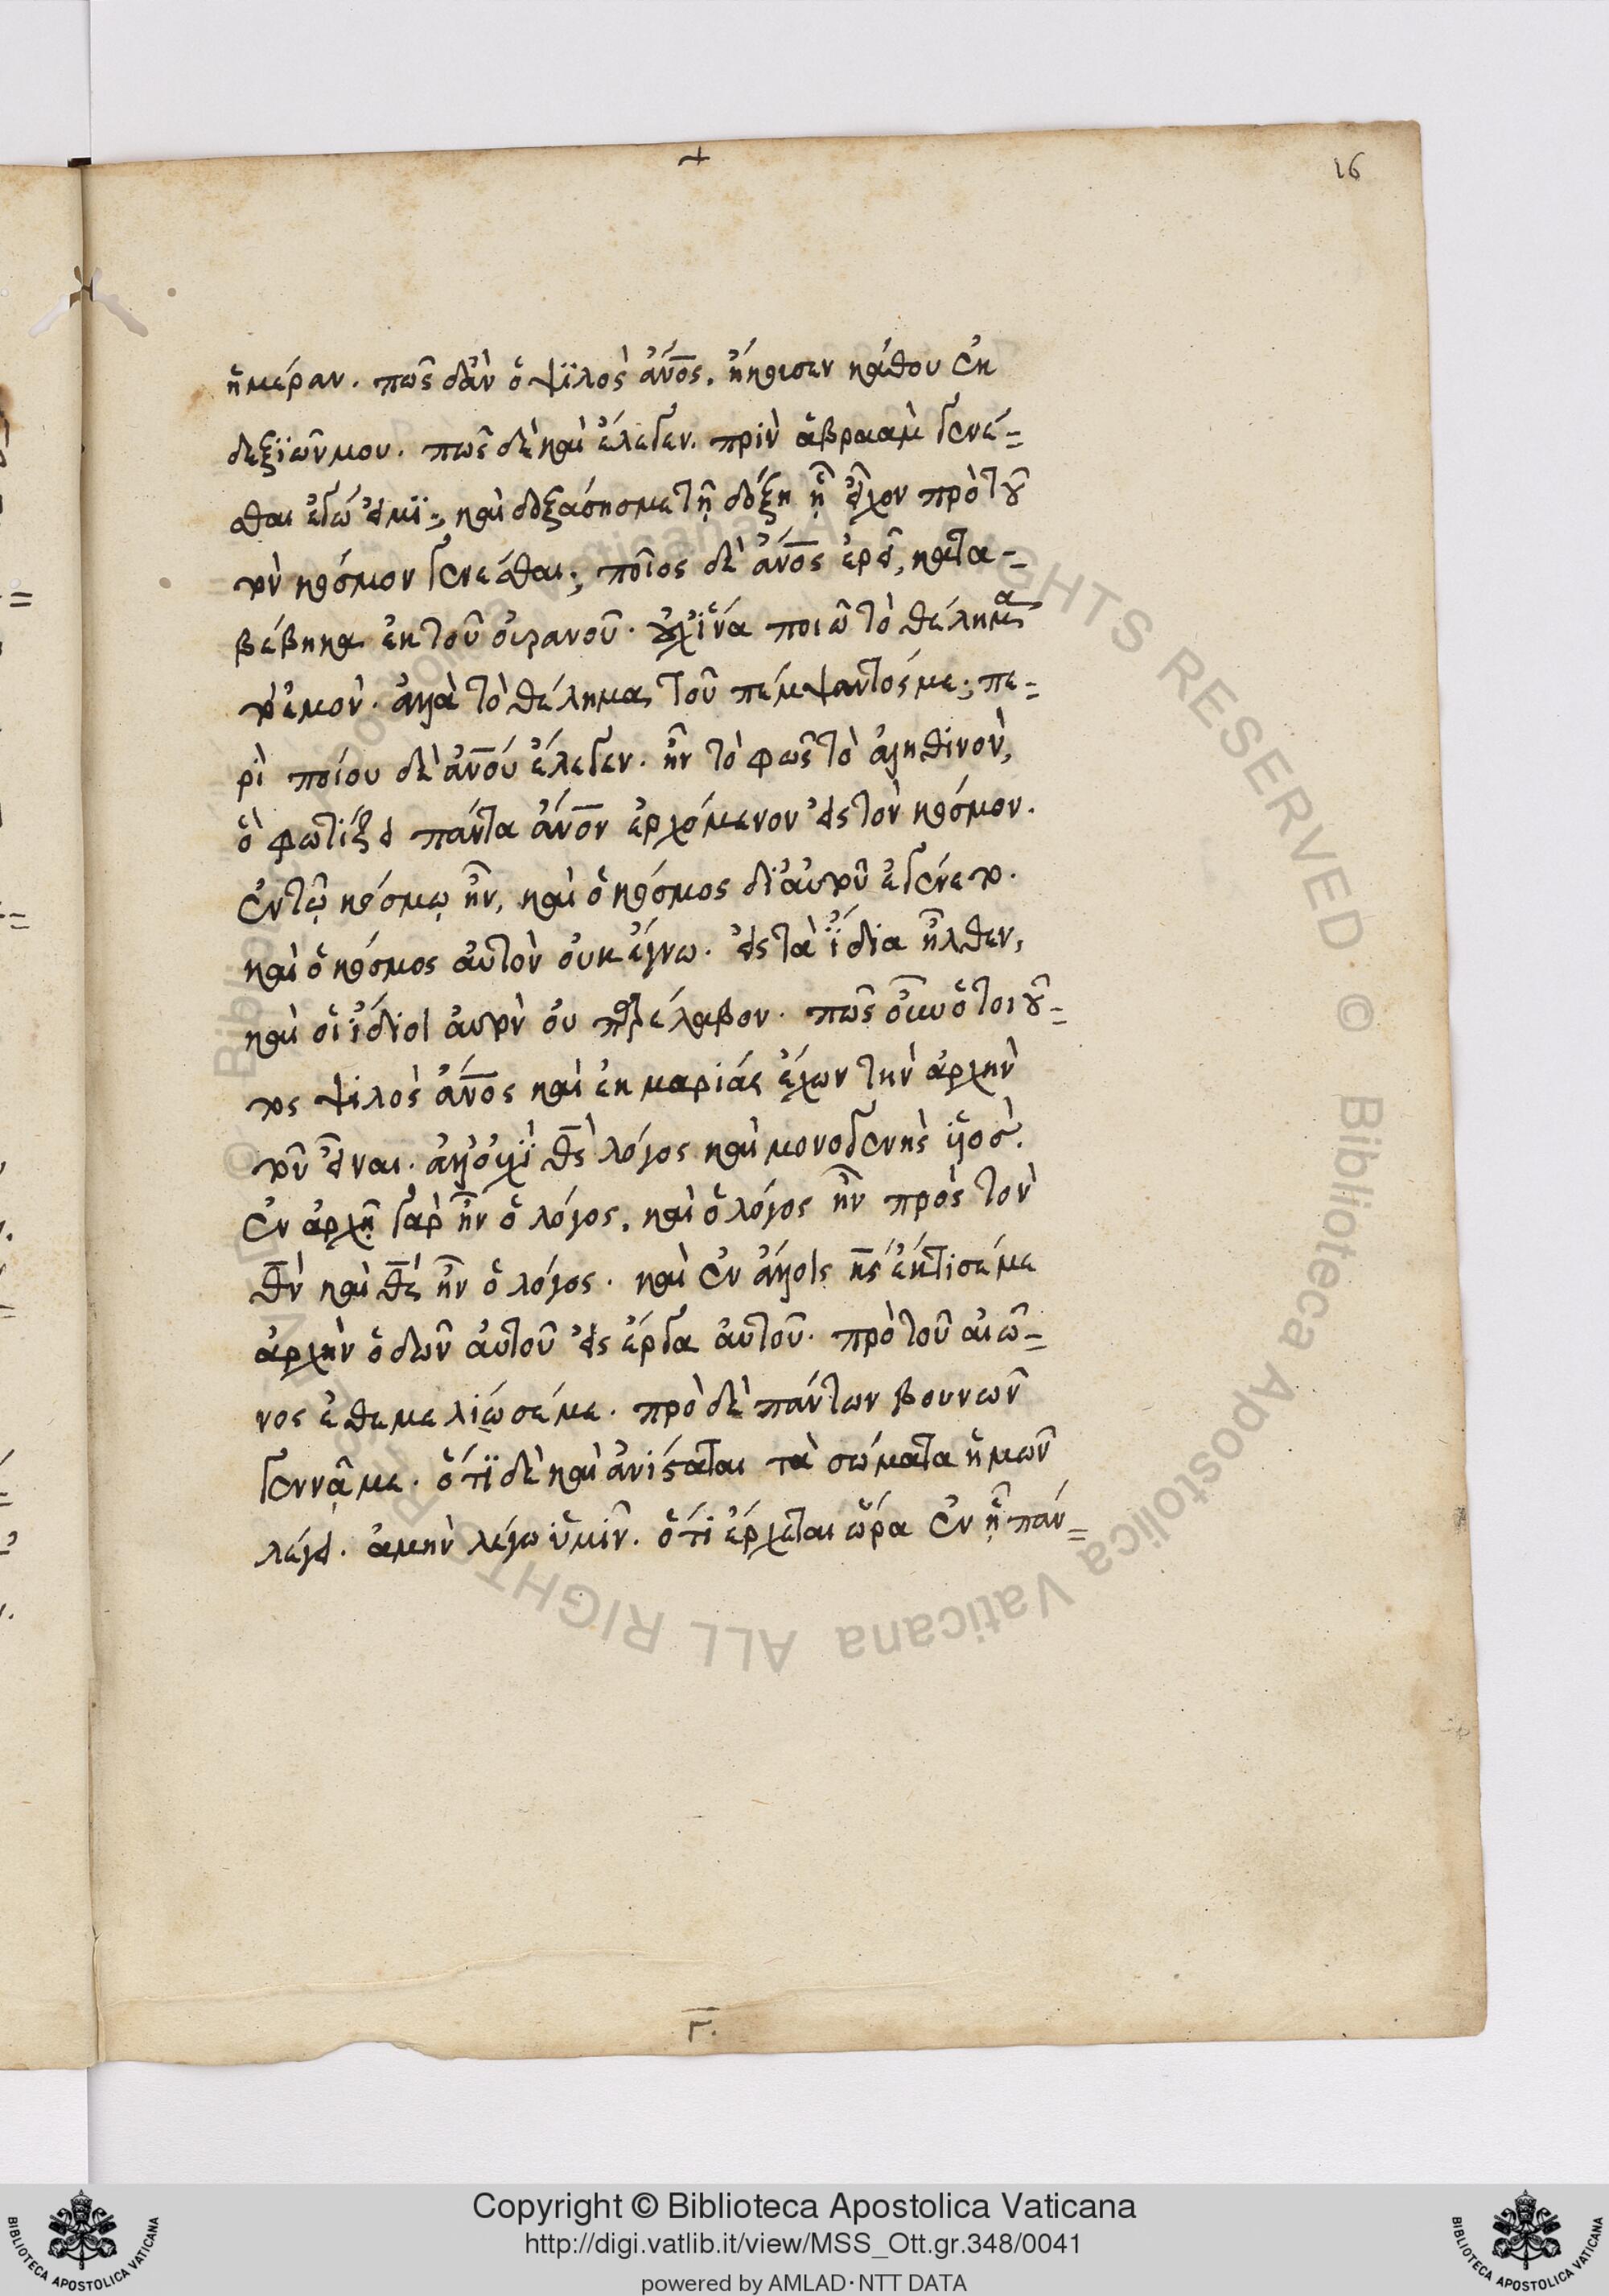 16
ἡμέραν. πῶς δἂν ὁ ψϊλὸς ἄνος, ἤκουσεν κάθου ἐκ
δεξϊῶν μου. πῶς δὲ καὶ ἔλεγεν. πρὶν ἀβραὰμ γενέ=
σθαι ἐγώ εἰμϊ; καὶ δόξασόν με τῇ δόξῃ ᾗ εἶχον πρὸ τοῦ
τὸν κόσμον γενέσθαι; ποῖος δὲ ἄνος ἐρεῖ, κατα=
βέβηκα ἐκ τοῦ οὐρανοῦ. οὐχ ἵνα ποιῶ τὸ θέλημα
τὸ ἐμὸν. ἀλλὰ τὸ θέλημα τοῦ πέμψαντός με; πε=
ρὶ ποίου δὲ ἀνου ἔλεγεν. ἦν τὸ φῶς τὸ ἀληθινὸν,
ὃ φωτίζει πάντα ἄνον ἐρχόμενον εἰς τὸν κόσμον.
ἐν τῷ κόσμῳ ἦν, καὶ ὁ κόσμος δι' αὐτοῦ ἐγένετο.
καὶ ὁ κόσμος αὐτὸν οὐκ ἔγνω. εἰς τὰ ἴδια ἦλθεν,
καὶ οἱ ἴδιοι αὐτὸν οὐ παρέλαβον. πῶς οὖν ὁ τοιοῦ=
τος ψιλὸς ἄνος καὶ ἐκ μαρίας ἔχων τὴν ἀρχὴν
τοῦ εἶναι. ἀλλ' οὐχὶ θς λόγος καὶ μονογενὴς
ἐν ἀρχῇ γὰρ ἦν ὁ λόγος, καὶ ὁ λόγος ἦν πρὸς τὸν
θν καὶ θς ἦν ὁ λόγος. καὶ ἐν ἄλλοις κς ἔκτισέ με
ἀρχὴν ὁδῶν αὐτοῦ εἰς ἔργα αὐτοῦ. πρὸ τοῦ αἰῶ=
νος ἐθεμελίωσέ με. πρὸ δὲ πάντων βουνῶν
γεννᾷ με. ὅτϊ δὲ καὶ ἀνίσταται τὰ σώματα ἡμῶν
λέγει. ἀμὴν λέγω ὑμῖν. ὅτι ἔρχεται ὥρα ἐν ᾗ πάν=
Γ.
© Biblioteca Apostolica Vaticana ALL RIGHTS RESERVED
Copyright © Biblioteca Apostolica Vaticana
http://digi.vatlib.it/view/MSS_Ott.gr.348/0041
powered by AMLAD·NTT DATA
BIBLIOTECA APOSTOLICA VATICANA
BIBLIOTECA APOSTOLICA VATICANA